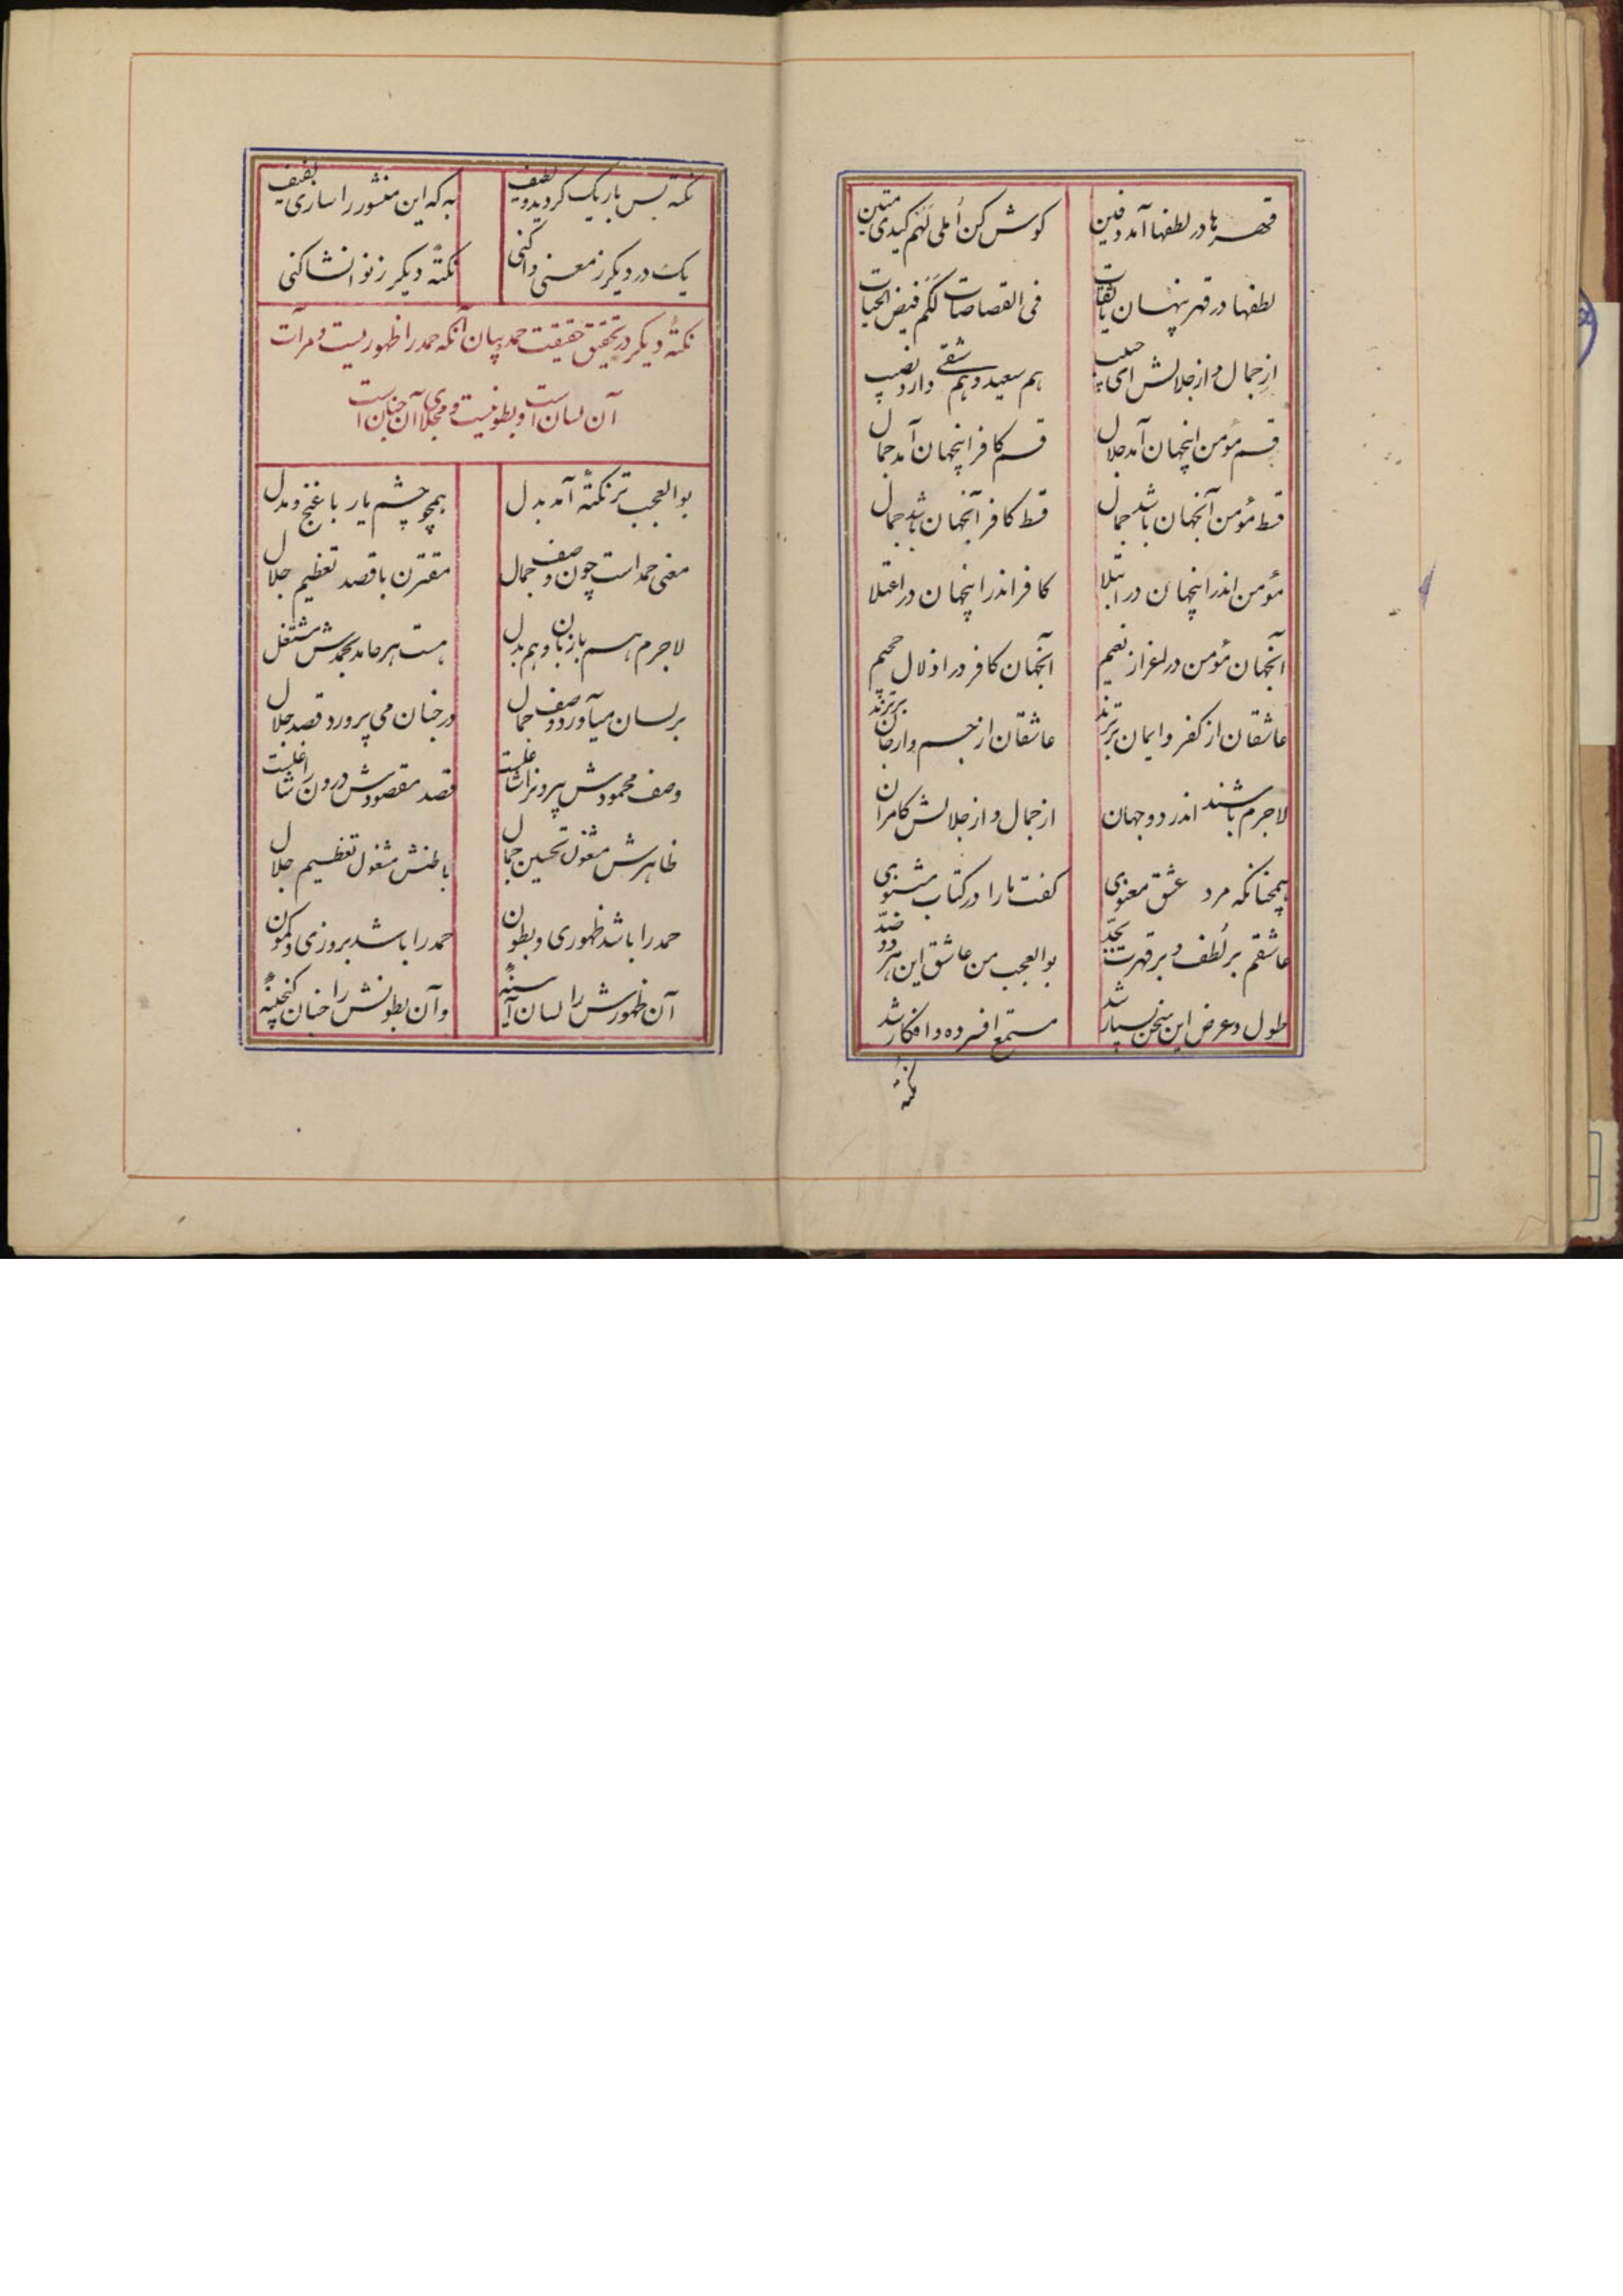 قهرها در لطفها آمد دفین
کوش کن اُملی لَهُم کیدی متین
لطفها در قهر پنهان یا ثقات
فی القصاصات لَکُم فیض الحیات
از جمال و از جلالش ای حبیب
هم سعید و هم شقی دارد نصیب
قسم مؤمن اینجهان آمد جلال
قسم کافر اینجهان آمد جمال
قسط مؤمن آنجهان باشد جمال
قسط کافر آنجهان باشد جمال
مؤمن اندر اینجهان در ابتلا
کافر اندر اینجهان در اعتلا
آنجهان مؤمن در اعزاز نعیم
آنجهان کافر در اذلال جحیم
عاشقان از کفر و ایمان برترند
عاشقان از جسم و از جان برترند
لاجرم باشند اندر دو جهان
از جمال و از جلالش کامران
همچنانکه مرد عشق معنوی
کفت ما را در کتاب مثنوی
عاشقم بر لُطف و بر قهرت بجدّ
بوالعجب من عاشق این هر دو ضدّ
طول و عرض این سخن بسیار شد
مستمع افسرده و افکار شد
نکته
نکته بس باریک کردید و لطیف
به که این منشور را سازی لفیف
یک در دیکر ز معنی واکنی
نکتهٔ دیکر ز نو انشا کنی
نکتهٔ دیکر در تحقیق حقیقت حمد و بیان آنکه حمد را ظهوریست و مرآت
آن لسان است و بطونیست و مجلای آن جنان است
بوالعجب تر نکتهٔ آمد بدل
همچو چشم یار با غنج و مدل
معنی حمد است چون وصف جمال
مقترن با قصد تعظیم جلال
لاجرم هم با زبان و هم بدل
هست هر حامد بحمدش مشتغل
بر لسان میآورد وصف جمال
در جنان می پرورد قصد جلال
وصف محمودش برونرا شاغلست
قصد مقصودش درون را شاغلست
ظاهرش مشغول تحسین جمال
باطنش مشغول تعظیم جلال
حمد را باشد ظهوری و بطون
حمد را باشد بروزی و کمون
آن ظهورش را لسان آیینهٔ
وآن بطونش را جنان کنجینهٔ